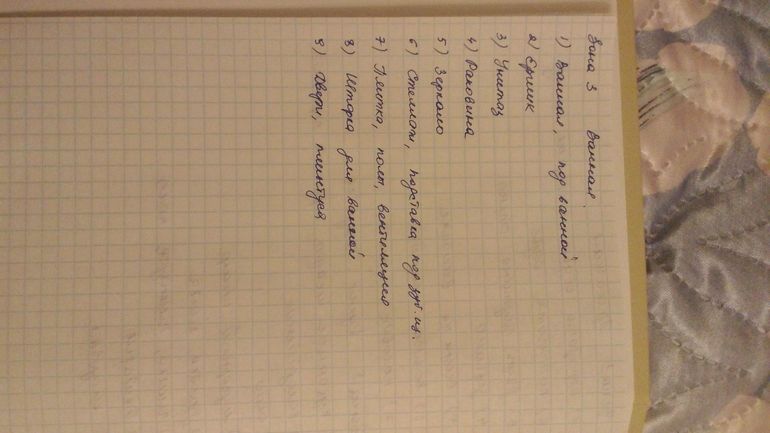 Зона 3 Ванная.
1) Ванная, под ванной
2) Ершик
3) Унитаз
4) Раковина
5) Зеркало
6) Стеллаж, подставка под зуб. щ.
7) Плитка, полы, вентиляция
8) Шторка для ванной
9) Двери, плинтуса